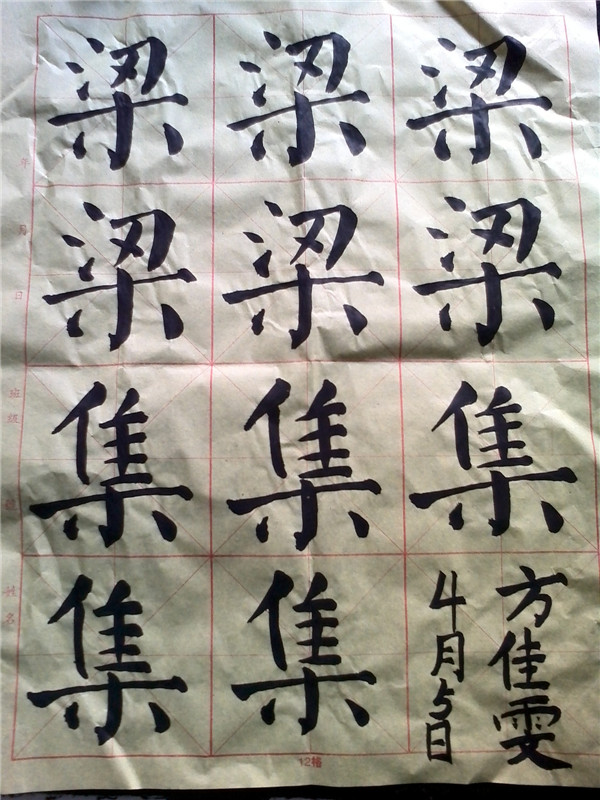 梁梁梁
梁梁梁
集集集
集集
方佳雯
4月5日
年月日
班级
姓名
12格